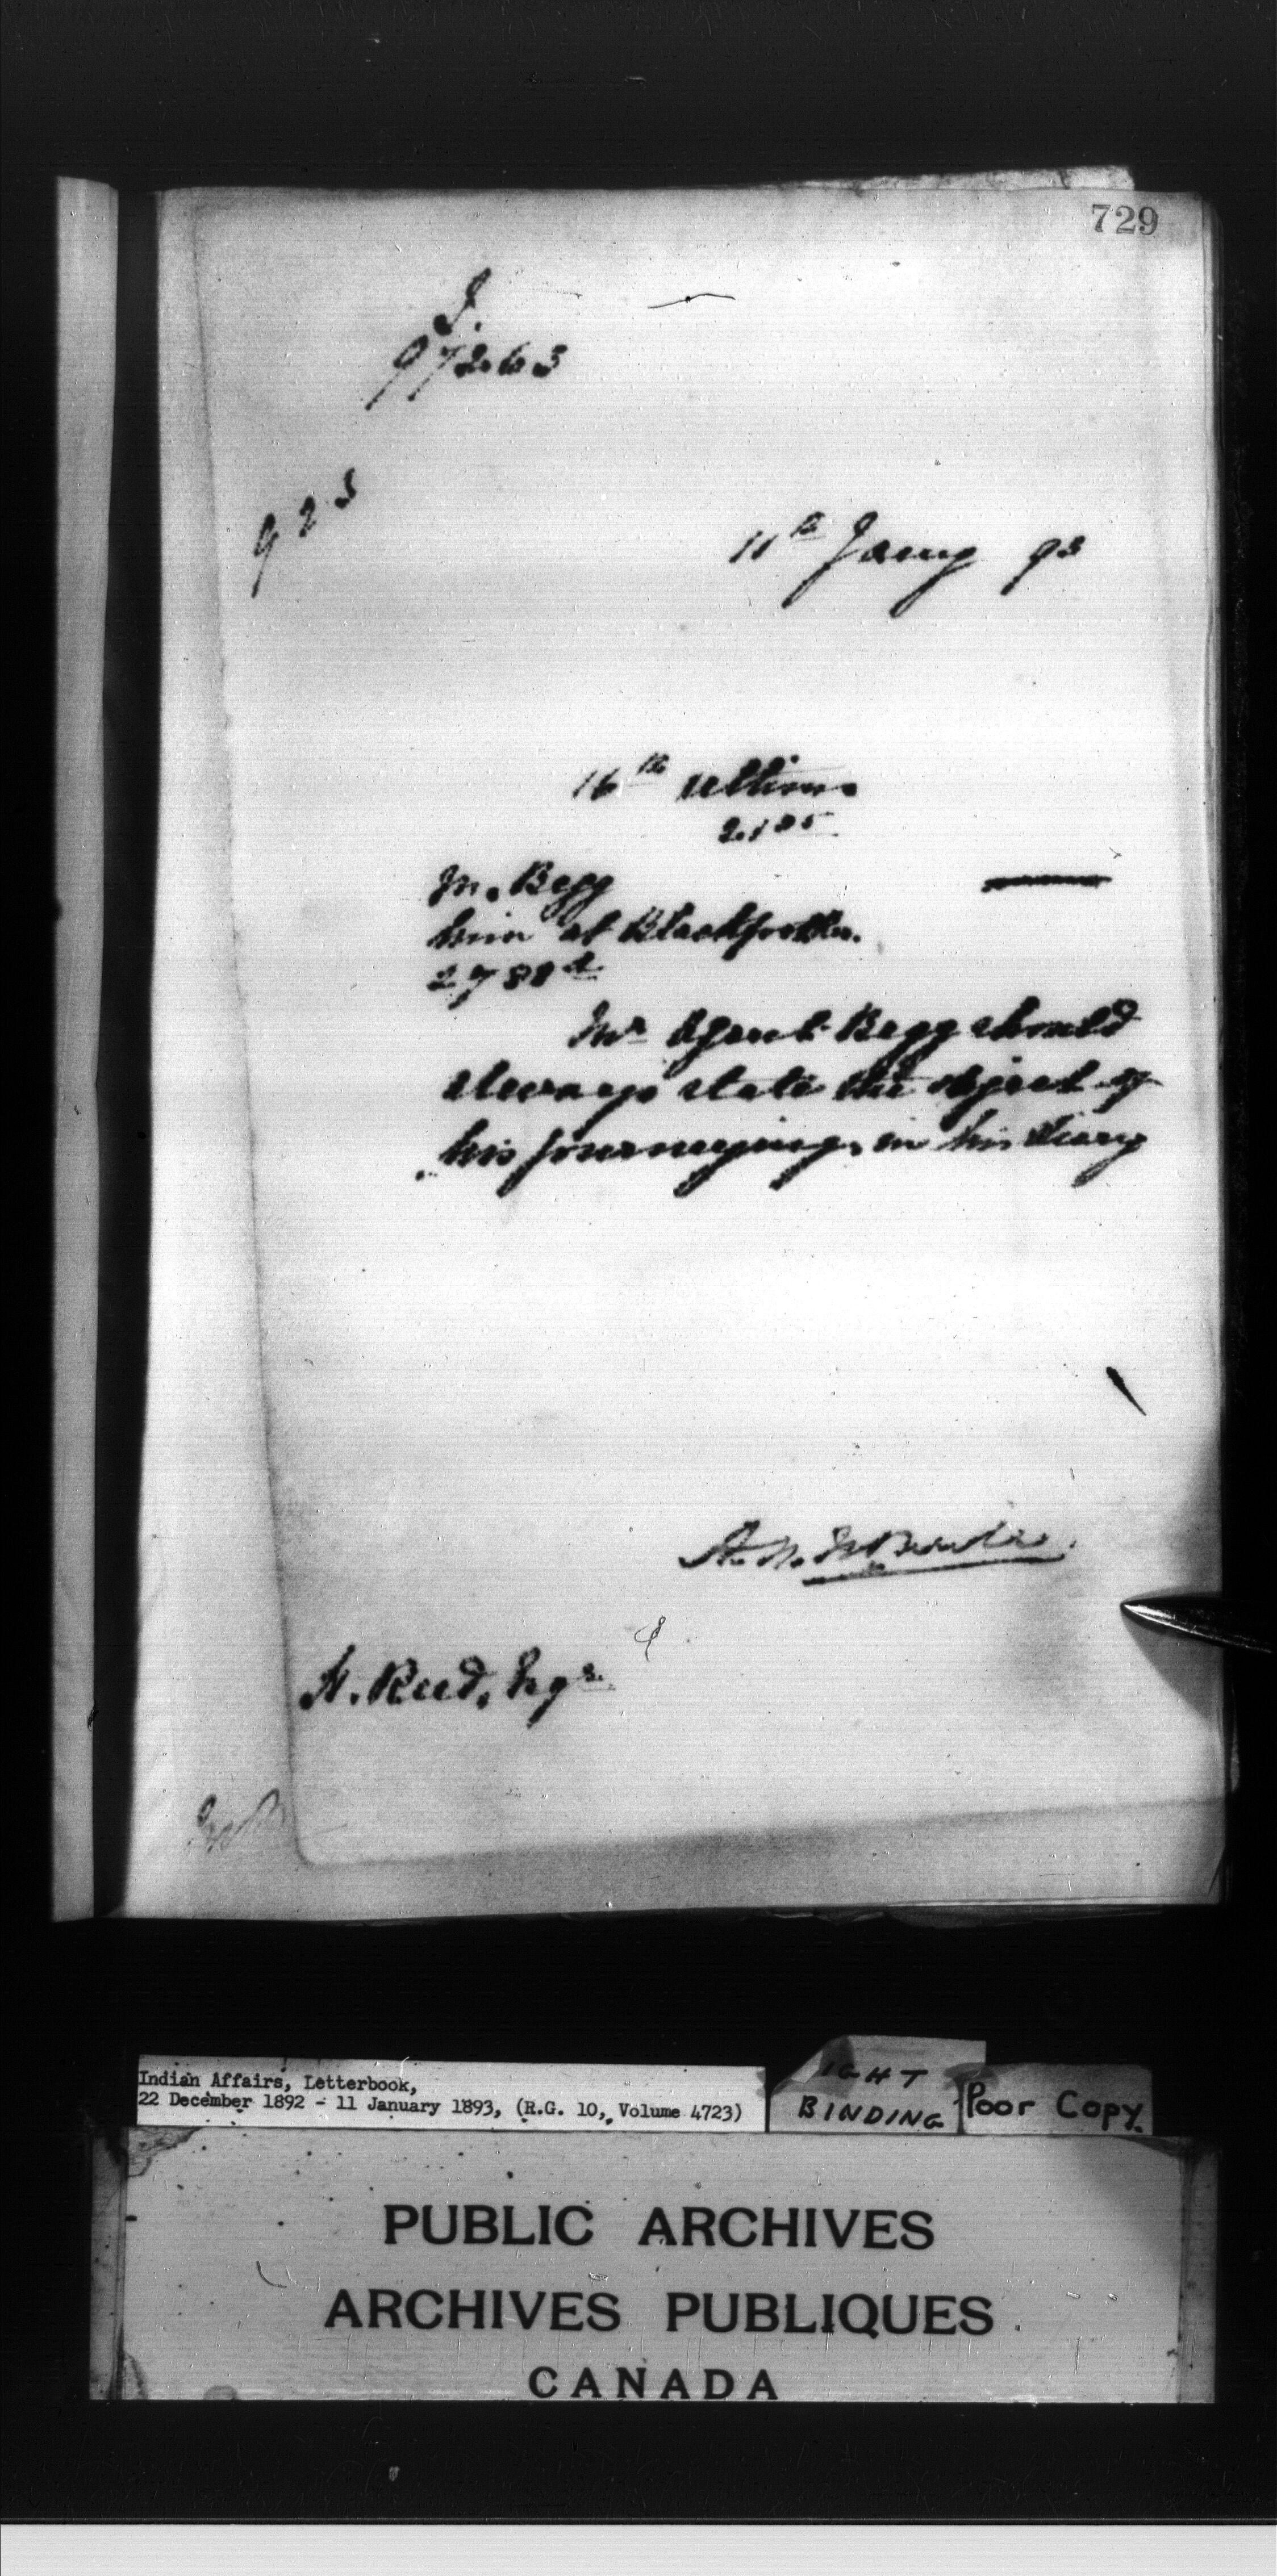 729
S.
97263
923
11th Jany 93
16th Ultimo
2185
M. Begg
him at Blackfoot
2788
Mr Agent Begg should
always state the object of
his journeying, in his diary
H. Reed, Esqr
Indian Affairs, Letterbook,
22 December 1892 - 11 January 1893, (R.G. 10, Volume 4723)
IGHT
BINDING
Poor Copy
PUBLIC ARCHIVES
ARCHIVES PUBLIQUES
CANADA